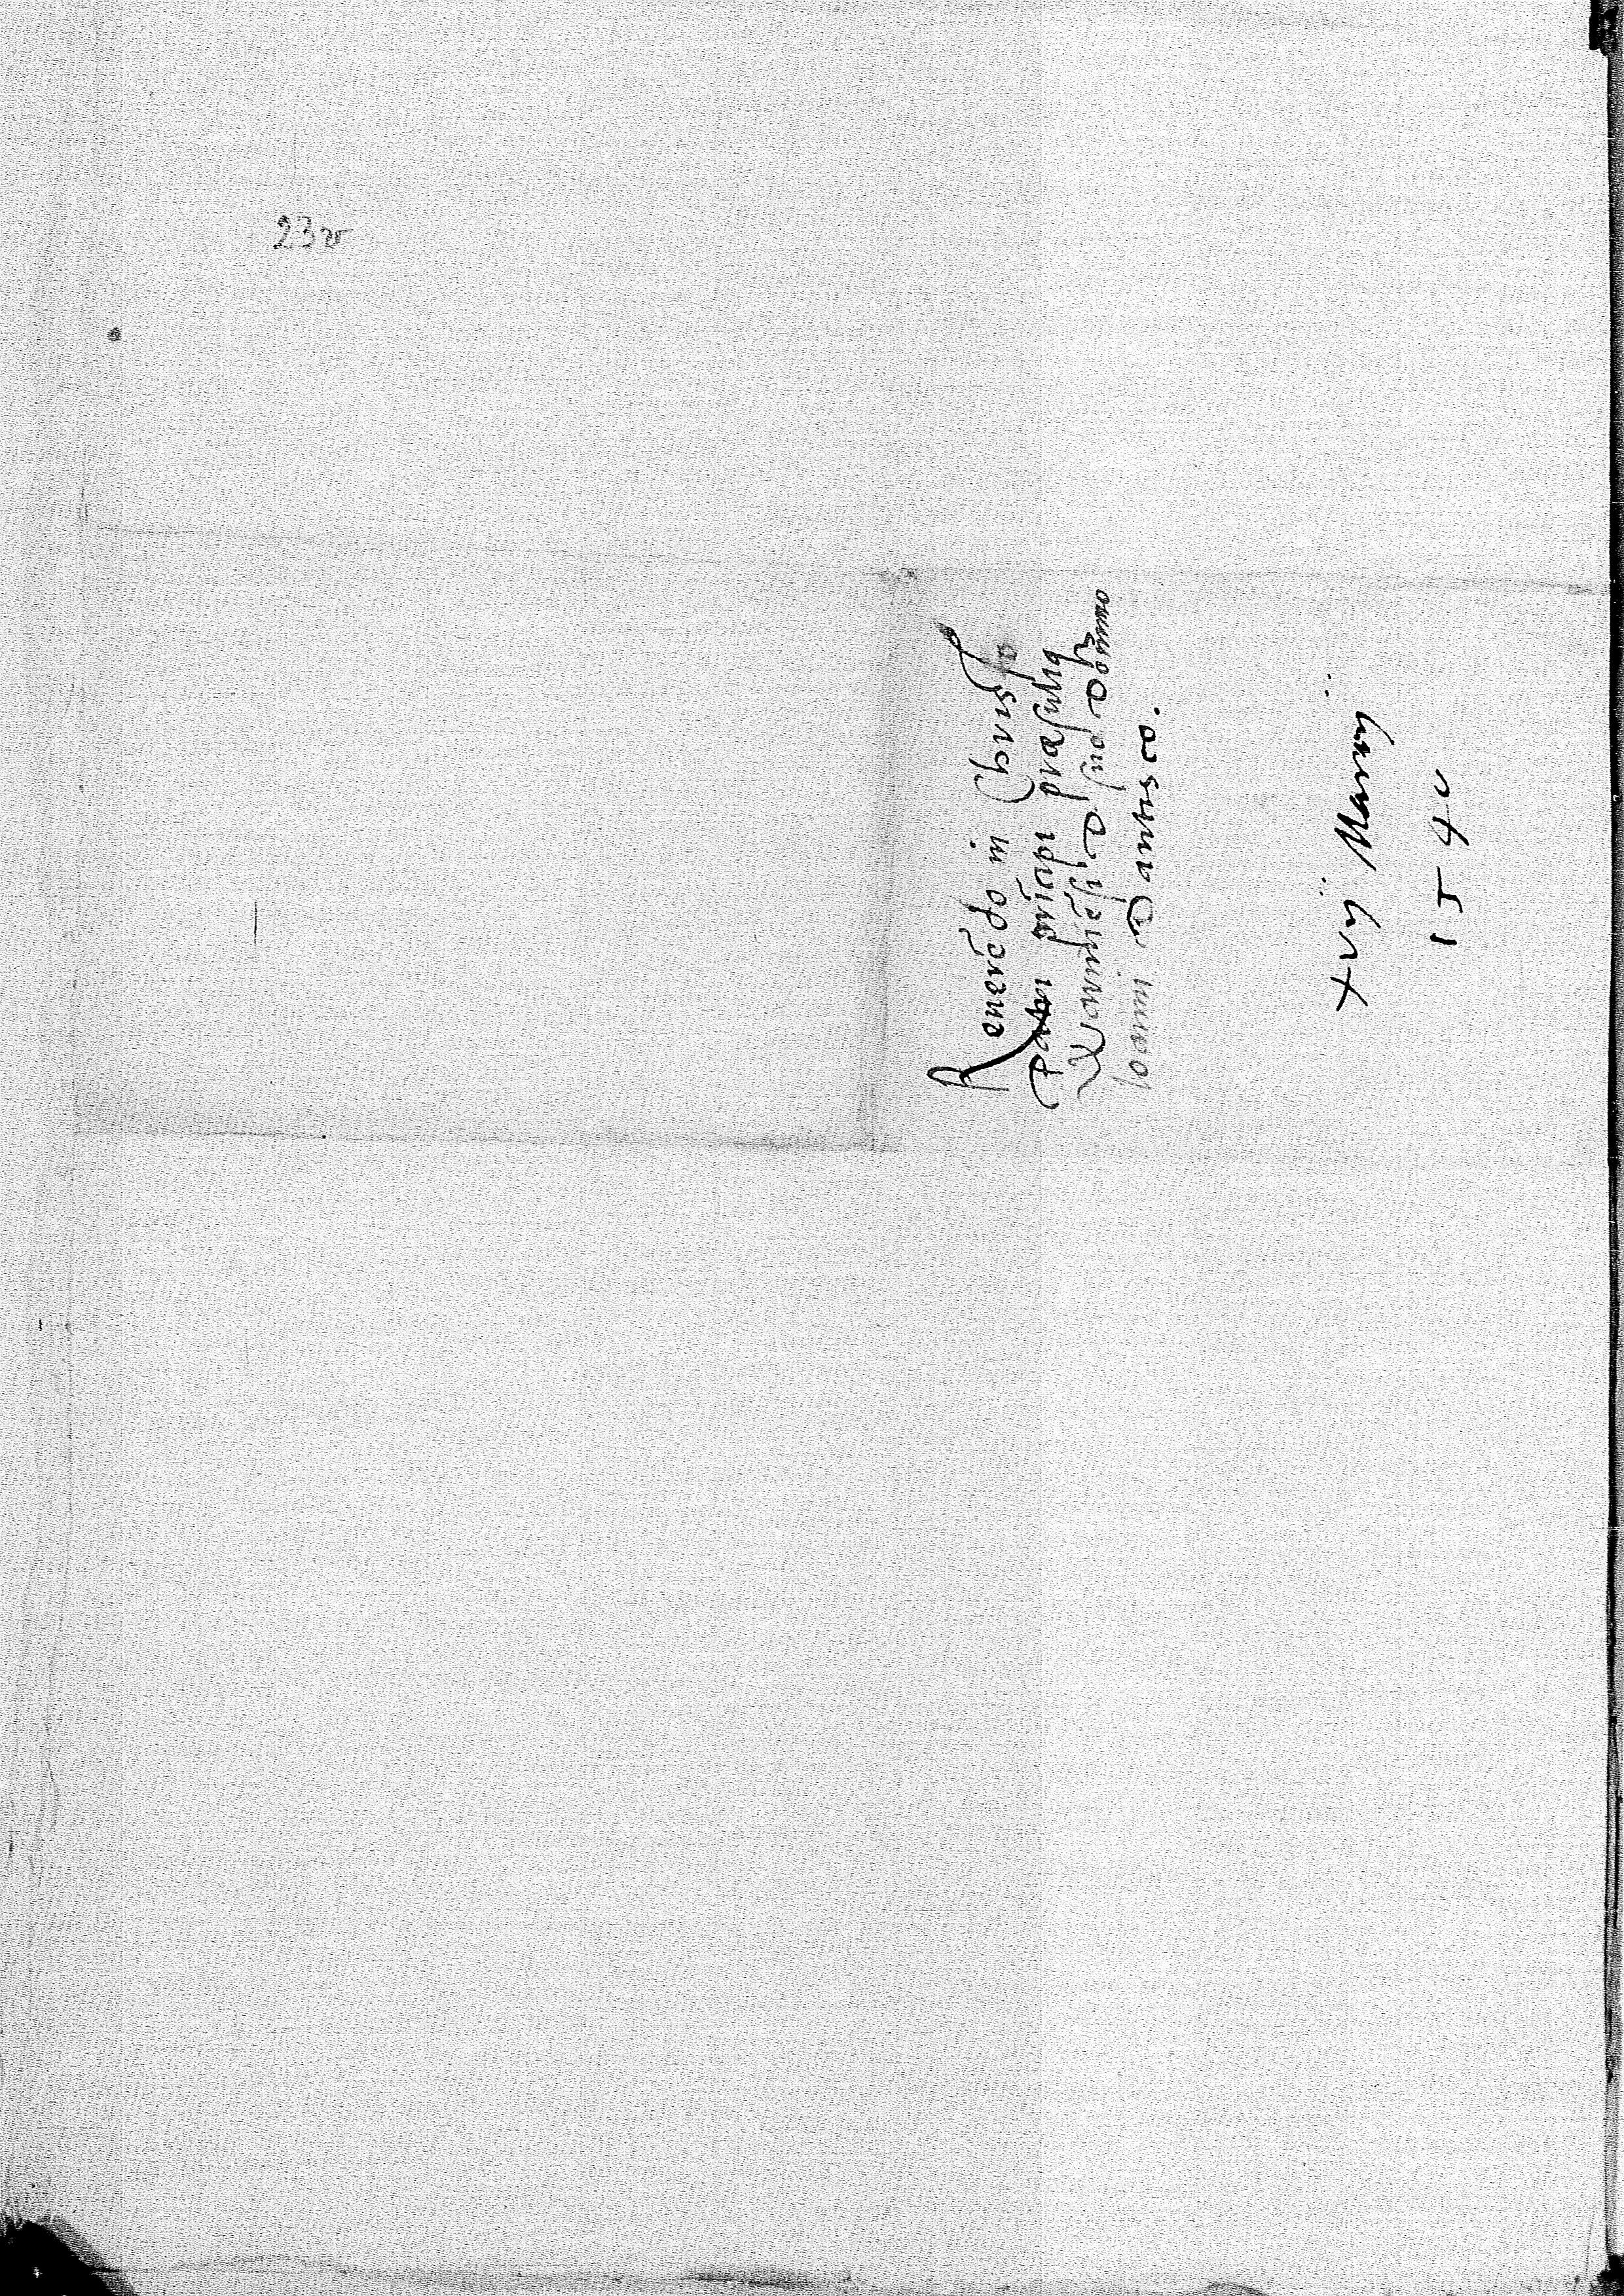 23v
Reverēdo in Christo
Patri prīcipi præsuliq
Warmieñsi Dño suo dōmino
Joanni Dantisco.
xvij Martij
1540